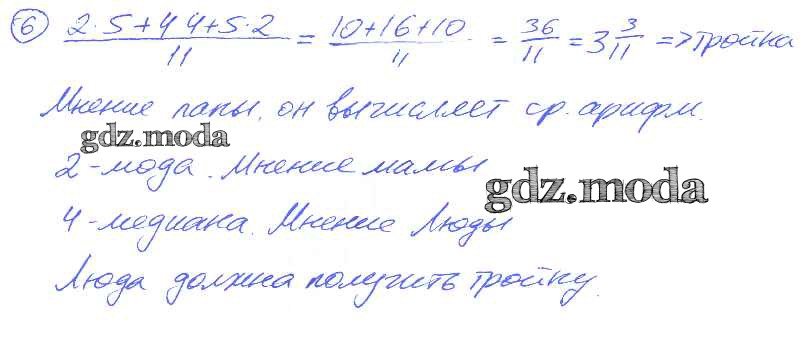 6) 2·5+4 4+5·2 / 11 = 10+16+10 / 11 = 36/11 = 3 3/11 => тройка
Мнение папы, он вычисляет ср. арифм.
gdz.moda
2-мода. Мнение мамы
gdz.moda
4-медиана. Мнение Люды
Люда должна получить тройку.